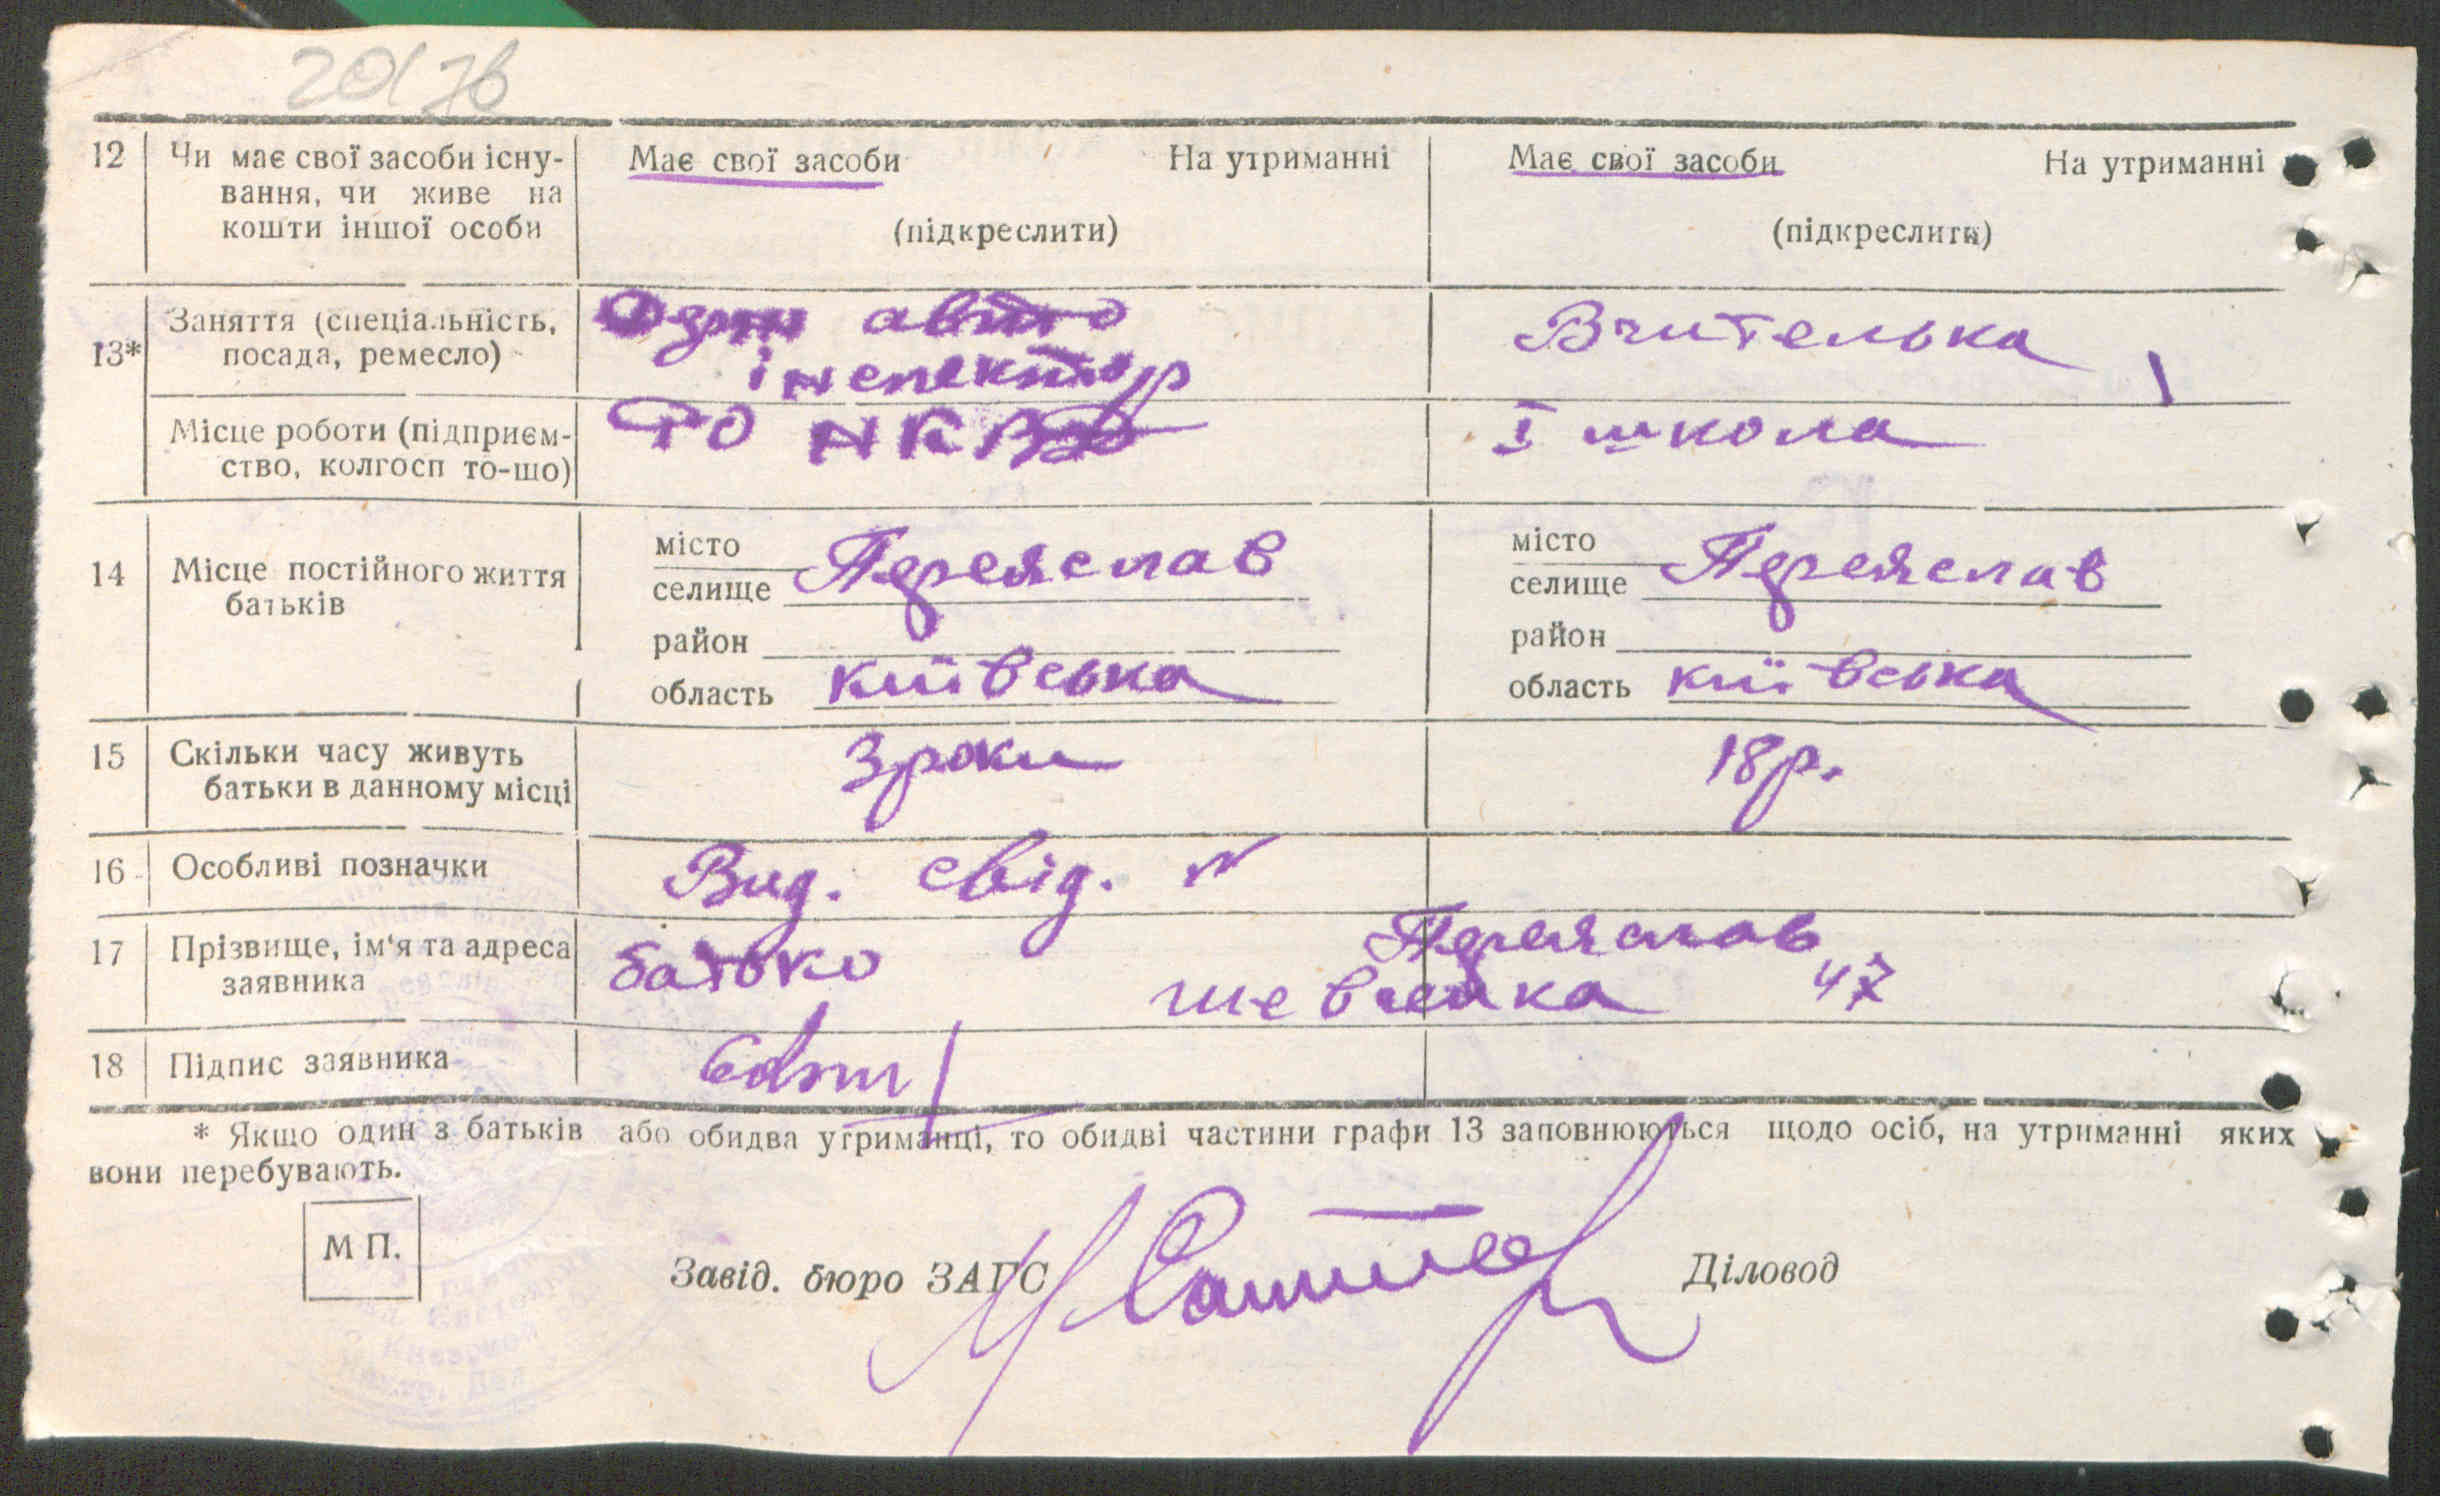 20176
12 Чи має свої засоби існу- Має свої засоби На утриманні Має свої засоби На утриманні
вання, чи живе на
кошти іншої особи (підкреслити) (підкреслити)
13* Заняття (спеціальність, авто Вчителька
посада, ремесло) інспектор
Місце роботи (підприєм- РО НКВД І школа
ство, колгосп то-що)
14 Місце постійного життя місто Переяслав місто Переяслав
батьків селище селище
район район
область київська область київська
15 Скільки часу живуть 3 роки 18 р.
батьки в данному місці
16 Особливі позначки Вид. свід. №
17 Прізвище, ім'я та адреса батько Переяслав
заявника шевченка 47
18 Підпис заявника
* Якщо один з батьків або обидва утриманці, то обидві частини графи 13 заповнюються щодо осіб, на утриманні яких
вони перебувають.
М П.
Завід. бюро ЗАГС Діловод